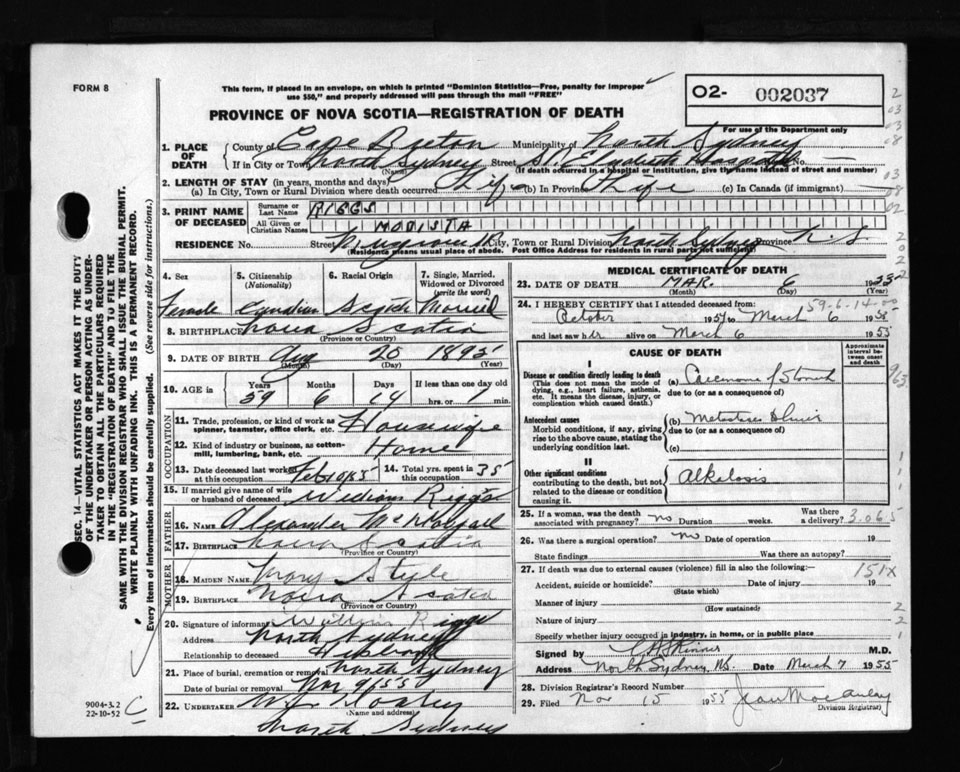 FORM 8
This form, if placed in an envelope, on which is printed "Dominion Statistics—Free, penalty for improper
use $50," and properly addressed will pass through the mail "FREE"
PROVINCE OF NOVA SCOTIA—REGISTRATION OF DEATH
02- 002037
For use of the Department only
1. PLACE OF DEATH County of Cape Breton Municipality of North Sydney
If in City or Town North Sydney Street St. Elizabeth Hospital No. —
(Name) (If death occurred in a hospital or institution, give the name instead of street and number)
2. LENGTH OF STAY (in years, months and days)
(a) In City, Town or Rural Division where death occurred Life (b) In Province Life (c) In Canada (if immigrant) —
3. PRINT NAME OF DECEASED Surname or Last Name RIGGS
All Given or Christian Names MODISTA
RESIDENCE No. Street City, Town or Rural Division North Sydney Province N.S.
(Residence means usual place of abode. Post Office Address for residents in rural parts not sufficient)
4. Sex 5. Citizenship (Nationality) 6. Racial Origin 7. Single, Married, Widowed or Divorced (write the word)
Female Canadian Scotch Married
8. BIRTHPLACE Nova Scotia
(Province or Country)
9. DATE OF BIRTH Aug 20 1895
(Month) (Day) (Year)
10. AGE in Years Months Days If less than one day old
59 6 14 hrs. or min.
OCCUPATION
11. Trade, profession, or kind of work as spinner, teamster, office clerk, etc. Housewife
12. Kind of industry or business, as cotten-mill, lumbering, bank, etc. Home
13. Date deceased last worked at this occupation Feb 10/55 14. Total yrs. spent in 35
15. If married give name of wife or husband of deceased William Riggs
FATHER
16. NAME Alexander
17. BIRTHPLACE Nova Scotia
(Province or Country)
MOTHER
18. MAIDEN NAME Mary Style
19. BIRTHPLACE Nova Scotia
(Province or Country)
20. Signature of informant William Riggs
Address North Sydney
Relationship to deceased Husband
21. Place of burial, cremation or removal North Sydney
Date of burial or removal Mar 9/55
22. UNDERTAKER
(Name and address)
North Sydney
MEDICAL CERTIFICATE OF DEATH
23. DATE OF DEATH MAR. 6
(Month) (Day) (Year)
59-6-14-00
24. I HEREBY CERTIFY that I attended deceased from
October 1954 to March 6 1955
and last saw her alive on March 6 1955
CAUSE OF DEATH
Approximate interval between onset and death
I
Disease or condition directly leading to death (a) Carcinoma of Stomach
(This does not mean the mode of dying, e.g., heart failure, asthenia, etc. It means the disease, injury, or complication which caused death.)
due to (or as a consequence of)
Antecedent causes (b) Metastases Liver
Morbid conditions, if any, giving rise to the above cause, stating the underlying condition last.
due to (or as a consequence of)
(c)
II
Other significant conditions Alkalosis
contributing to the death, but not related to the disease or condition causing it.
25. If a woman, was the death associated with pregnancy? no Duration weeks. Was there a delivery? 3.065
26. Was there a surgical operation? no Date of operation 19
State findings Was there an autopsy?
27. If death was due to external causes (violence) fill in also the following: 151X
Accident, suicide or homicide? Date of injury 19
(State which)
Manner of injury
(How sustained)
Nature of injury
Specify whether injury occurred in industry, in home, or in public place
Signed by M.D.
Address North Sydney, N.S. Date March 7 1955
28. Division Registrar's Record Number
29. Filed 15 1955
Division Registrar)
SEC. 14—VITAL STATISTICS ACT MAKES IT THE DUTY
OF THE UNDERTAKER OR PERSON ACTING AS UNDER-
TAKER TO OBTAIN ALL THE PARTICULARS REQUIRED
IN THE "REGISTRATION OF DEATH" AND TO FILE THE
SAME WITH THE DIVISION REGISTRAR WHO SHALL ISSUE THE BURIAL PERMIT.
WRITE PLAINLY WITH UNFADING INK. THIS IS A PERMANENT RECORD.
Every item of information should be carefully supplied. (See reverse side for instructions.)
9004-3.2
22-10-52
C